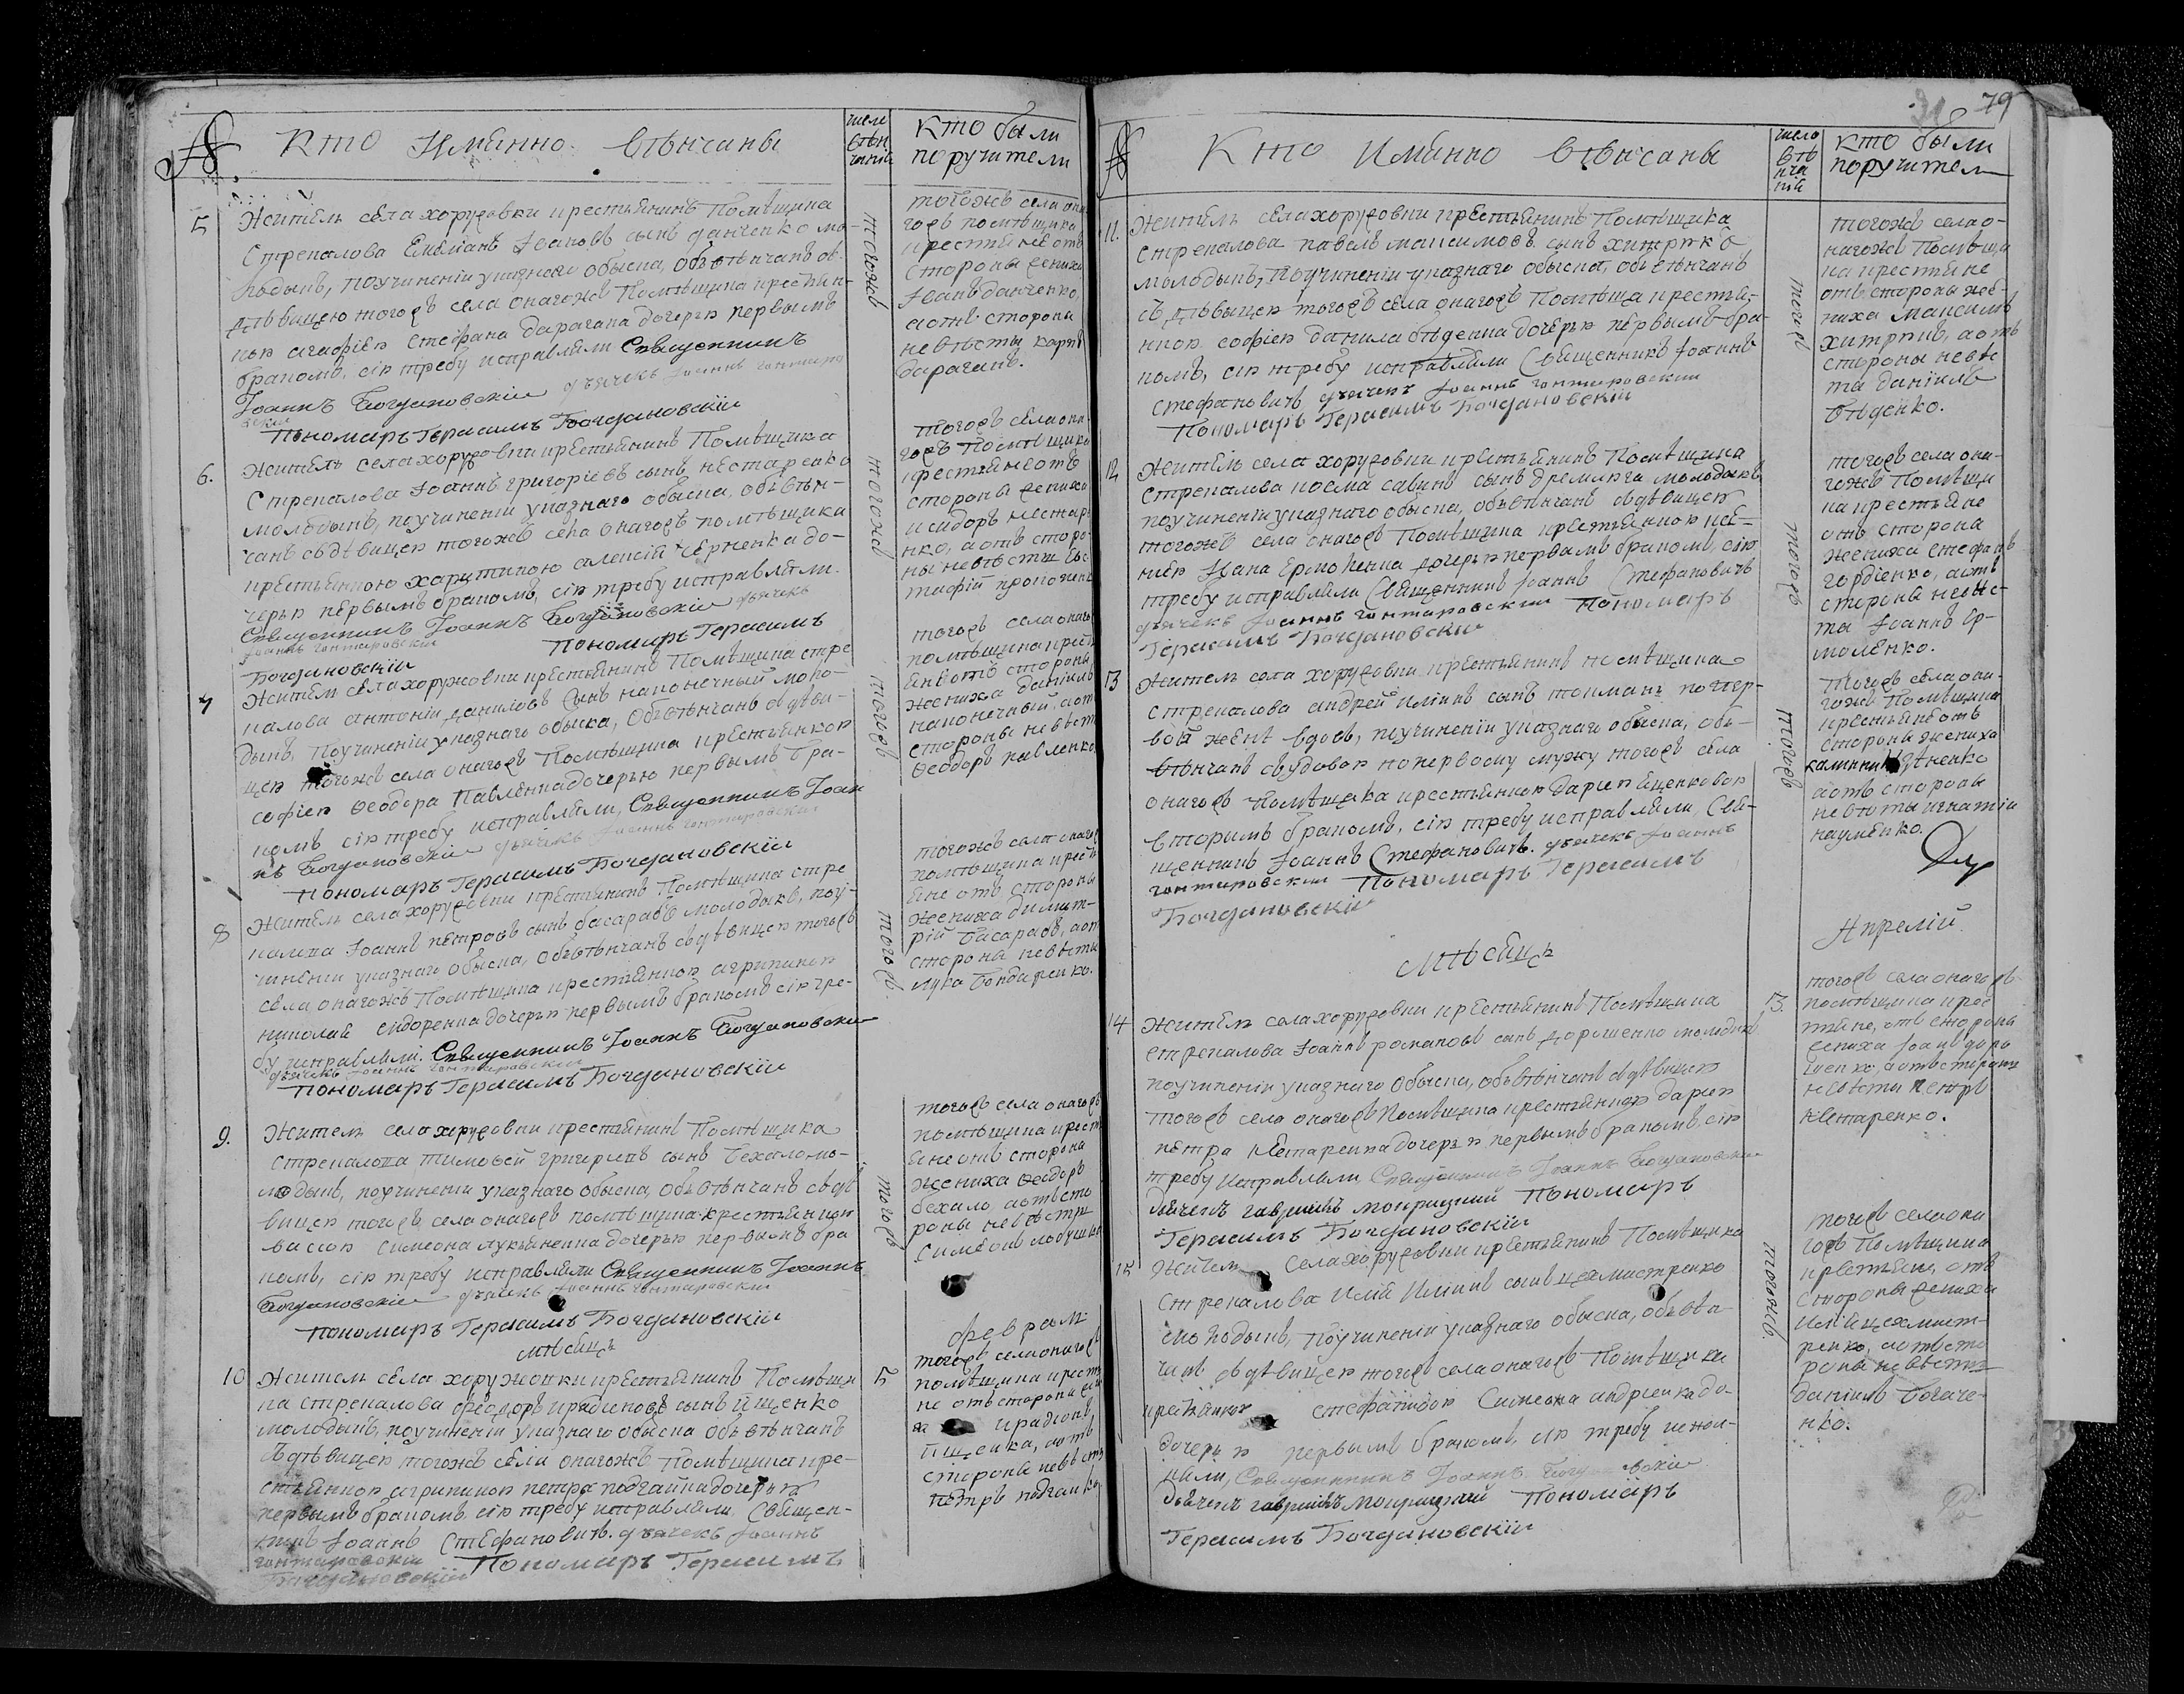 № Кто Имянно вѣнчаны
числ
вѣн
чаній
кто были
поручители
5 Житель села хоружовки крестьянинъ Помѣщика
Стрекалова Емелианъ Іоановъ сынъ данченко мо-
лодыкъ, поучиненіи указнаго обыска, объвѣнчанъ
дѣвицею тогожъ села онагожъ Помѣщика крестьян-
кою агафіею Стефана дарагана дочерью первымъ
бракомъ, сію требу исправляли Священникъ
Іоаннъ Богдановскій дьячекъ Іоаннъ гонтаро
вскій
Пономаръ Герасимъ Богдановскій
тогожъ
тогожъ села она
гожъ помѣщика
крестьяне отъ
стороны жениха
Іоанъ данченко,
а отъ стороны
невѣсты
дараганъ.
6. Житель села хоружовки крестьянинъ Помѣщика
Стрекалова Іоаннъ григоріевъ сынъ нестаренко
молодыкъ, поучиненіи указнаго обыска, объвѣн-
чанъ сьдѣвицею тогожъ села онагожъ помѣщика
крестьянкою харитиною алексія черненка до-
черью первымъ бракомъ, сію требу исправляли
Священникъ Іоаннъ Богдановскій дьячекъ
Іоаннъ гонтаровскій Пономаръ Герасимъ
Богдановскій
тогожъ
тогожъ села она
гожъ Помѣщика
крестьяне отъ
стороны жениха
исидоръ нестаре
нко, а отъ сторо
ны невѣсты ев
тафій прокопенк
7 Житель села хоружовки крестьянинъ Помѣщика стре
калова антоній даниловъ сынъ наконечный моло-
дыкъ, поучиненіи указнаго обыска, объвѣнчанъ сдѣви-
цею тогожъ села онагожъ Помѣщика крестьянкою
софіею Ѳеодора Павленка дочерью первымъ бра-
комъ сію требу исправляли, Священникъ Іоан
нъ Богдановскій дьячекъ Іоаннъ гонтаровскій
Пономаръ Герасимъ Богдановскій
тогожъ
тогожъ села онаго
помѣщика крест
яне отъ стороны
жениха даніилъ
наконечный, а от
стороны невѣст
Ѳеодоръ павленко
8 Житель села хоружовки крестьянинъ Помѣщика стре
калова Іоаннъ петровъ сынъ басарабъ молодыкъ, поу-
чиненіи указнаго обыска, объвѣнчанъ сьдѣвицею тогожъ
села онагожъ Помѣщика крестьянкою агрипиною
николая сидоренка дочерью первымъ бракомъ сію тре-
бу исправляли. Священникъ Іоаннъ Богдановскій
дьячекъ Іоаннъ гонтаровскій
Пономаръ Герасимъ Богдановскій
тогожъ.
тогожъ села онагож
помѣщика крестъ
яне отъ стороны
жениха димит-
рій басарабъ, а от
стороны невѣсты
лука бондаренко.
9. Житель села хоружовки крестьянинъ Помѣщика
стрекалова тимоѳей григоріевъ сынъ бехало мо-
лодыкъ, поучиненіи указнаго обыска, объвѣнчанъ сьдѣ
вицею тогожъ села онагожъ помѣщика крестьянкою
васіею Симеона лукьяненка дочерью первымъ бра
комъ, сію требу исправляли Священникъ Іоаннъ
Богдановскій дьячекъ Іоаннъ гонтаровскій
Пономаръ Герасимъ Богдановскій
тогожъ
тогожъ села онагожъ
помѣщика крест
яне отъ стороны
жениха Ѳеодоръ
бехало, а отъ сто
роны невѣсты
Симеонъ
мѣсяцъ
феврал
10 Житель села хоружовки крестьянинъ Помѣщи
ка стрекалова Ѳеодоръ ираліоновъ сынъ ищенко
молодыкъ, поучиненіи указнаго обыска объвѣнчанъ
сьдѣвицею тогожъ села онагожъ помѣщика кре-
стьянкою агрипиною петра подгайка дочерью
первымъ бракомъ сію требу исправляли, Священ-
никъ Іоаннъ Стефановичъ. дьячекъ Іоаннъ
гонтаровскій Пономаръ Герасимъ
Богдановскій
5
тогожъ села онагожъ
помѣщика кресть
не отъ стороны
ищенка, а отъ
стороны невѣсты
петръ подгайко
79
№ Кто Имянно вѣнчаны
число
вѣ
нча
ній
кто были
поручител
11. Житель села хоружовки крестьянинъ Помѣщика
Стрекалова павелъ максимовъ сынъ хитрикъ
молодыкъ, поучиненіи указнаго обыска, объвѣнчанъ
съ дѣвицею тогожъ села онагожъ Помѣща крестья-
нкою софіею данила бѣденка дочерью первымъ бра-
комъ, сію требу исправляли Священникъ Іоаннъ
Стефановичъ дьячекъ Іоаннъ гонтаровскій
Пономаръ Герасимъ Богдановскій
тогожъ
тогожъ села о-
нагожъ Помѣщи
ка крестьяне
отъ стороны же-
ниха Максимъ
хитрикъ, а отъ
стороны невѣс
та даніилъ
бѣденко.
12 Житель села хоружовки крестьянинъ Помѣщика
Стрекалова косма савинъ сынъ дремлюга молодыкъ
поучиненіи указнаго обыска, объвѣнчанъ сьдѣвицею
тогожъ села онагожъ Помѣщика крестьянкою ксе-
ніею Ивана Ермоленка дочерью первымъ бракомъ, сію
требу исправляли Священникъ Іоаннъ Стефановичъ
дьячекъ Іоаннъ гонтаровскій Пономаръ
Герасимъ Богдановскій
тогожъ
тогожъ села она-
гожъ Помѣщи
ка крестьяне
отъ стороны
жениха стефанъ
гордіенко, а отъ
стороны невѣс-
та Іоаннъ Ер-
моленко.
13 Житель села хоружовки крестьянинъ помѣщика
стрекалова андрей илинъ сынъ токманъ попер-
вой женѣ вдовъ, поучиненіи указнаго обыска, объ-
вѣнчанъ свудовою по первому мужу тогожъ села
онагожъ Помѣщика крестьянкою дарею яценковою
вторимъ бракомъ, сію требу исправляли, Свя-
щенникъ Іоаннъ Стефановичъ. дьячекъ Іоаннъ
гонтаровскій Пономаръ Герасимъ
Богдановскій
тогожъ
тогожъ села она-
гожъ Помѣщика
крестьяне отъ
стороны жениха
а отъ стороны
невѣсты игнатій
науменко.
мѣсяцъ
Апрелій
14 Житель села хоружовки крестьянинъ Помѣщика
стрекалова Іоаннъ романовъ сынъ дорошенко молодыкъ
поучиненіи указнаго обыска, объвѣнчанъ сьдѣвицею
тогожъ села онагожъ Помѣщика крестьянкою дарею
петра нестаренка дочерью первымъ бракомъ, сію
требу исправляли Священникъ Іоаннъ Богдановскій
дьячекъ гавріилъ мокрицкій Пономаръ
Герасимъ Богдановскій
13.
тогожъ села онагожъ
помѣщика крес
тьяне, отъ стороны
жениха Іоанъ доро
шенко, а отъ стороны
невѣсти петръ
нестаренко.
15 Житель села хоружовки крестьянинъ Помѣщика
стрекалова Илія Илинъ сынъ цехмистренко
молодыкъ, поучиненіи указнаго обыска, объвѣн
чанъ сьдѣвицею тогожъ села онагожъ Помѣщика
крестьянкою стефанидою Симеона андріенка до-
черью первымъ бракомъ, сію требу испол-
няли, Священникъ Іоаннъ
дьячекъ гавріилъ мокрицкій Пономаръ
Герасимъ Богдановскій
тогожъ.
тогожъ села она
гожъ Помѣщика
крестьяне, отъ
стороны жениха
Илія цехмист-
ренко, а отъ сто
роны невѣсты
даніилъ богаче-
нко.